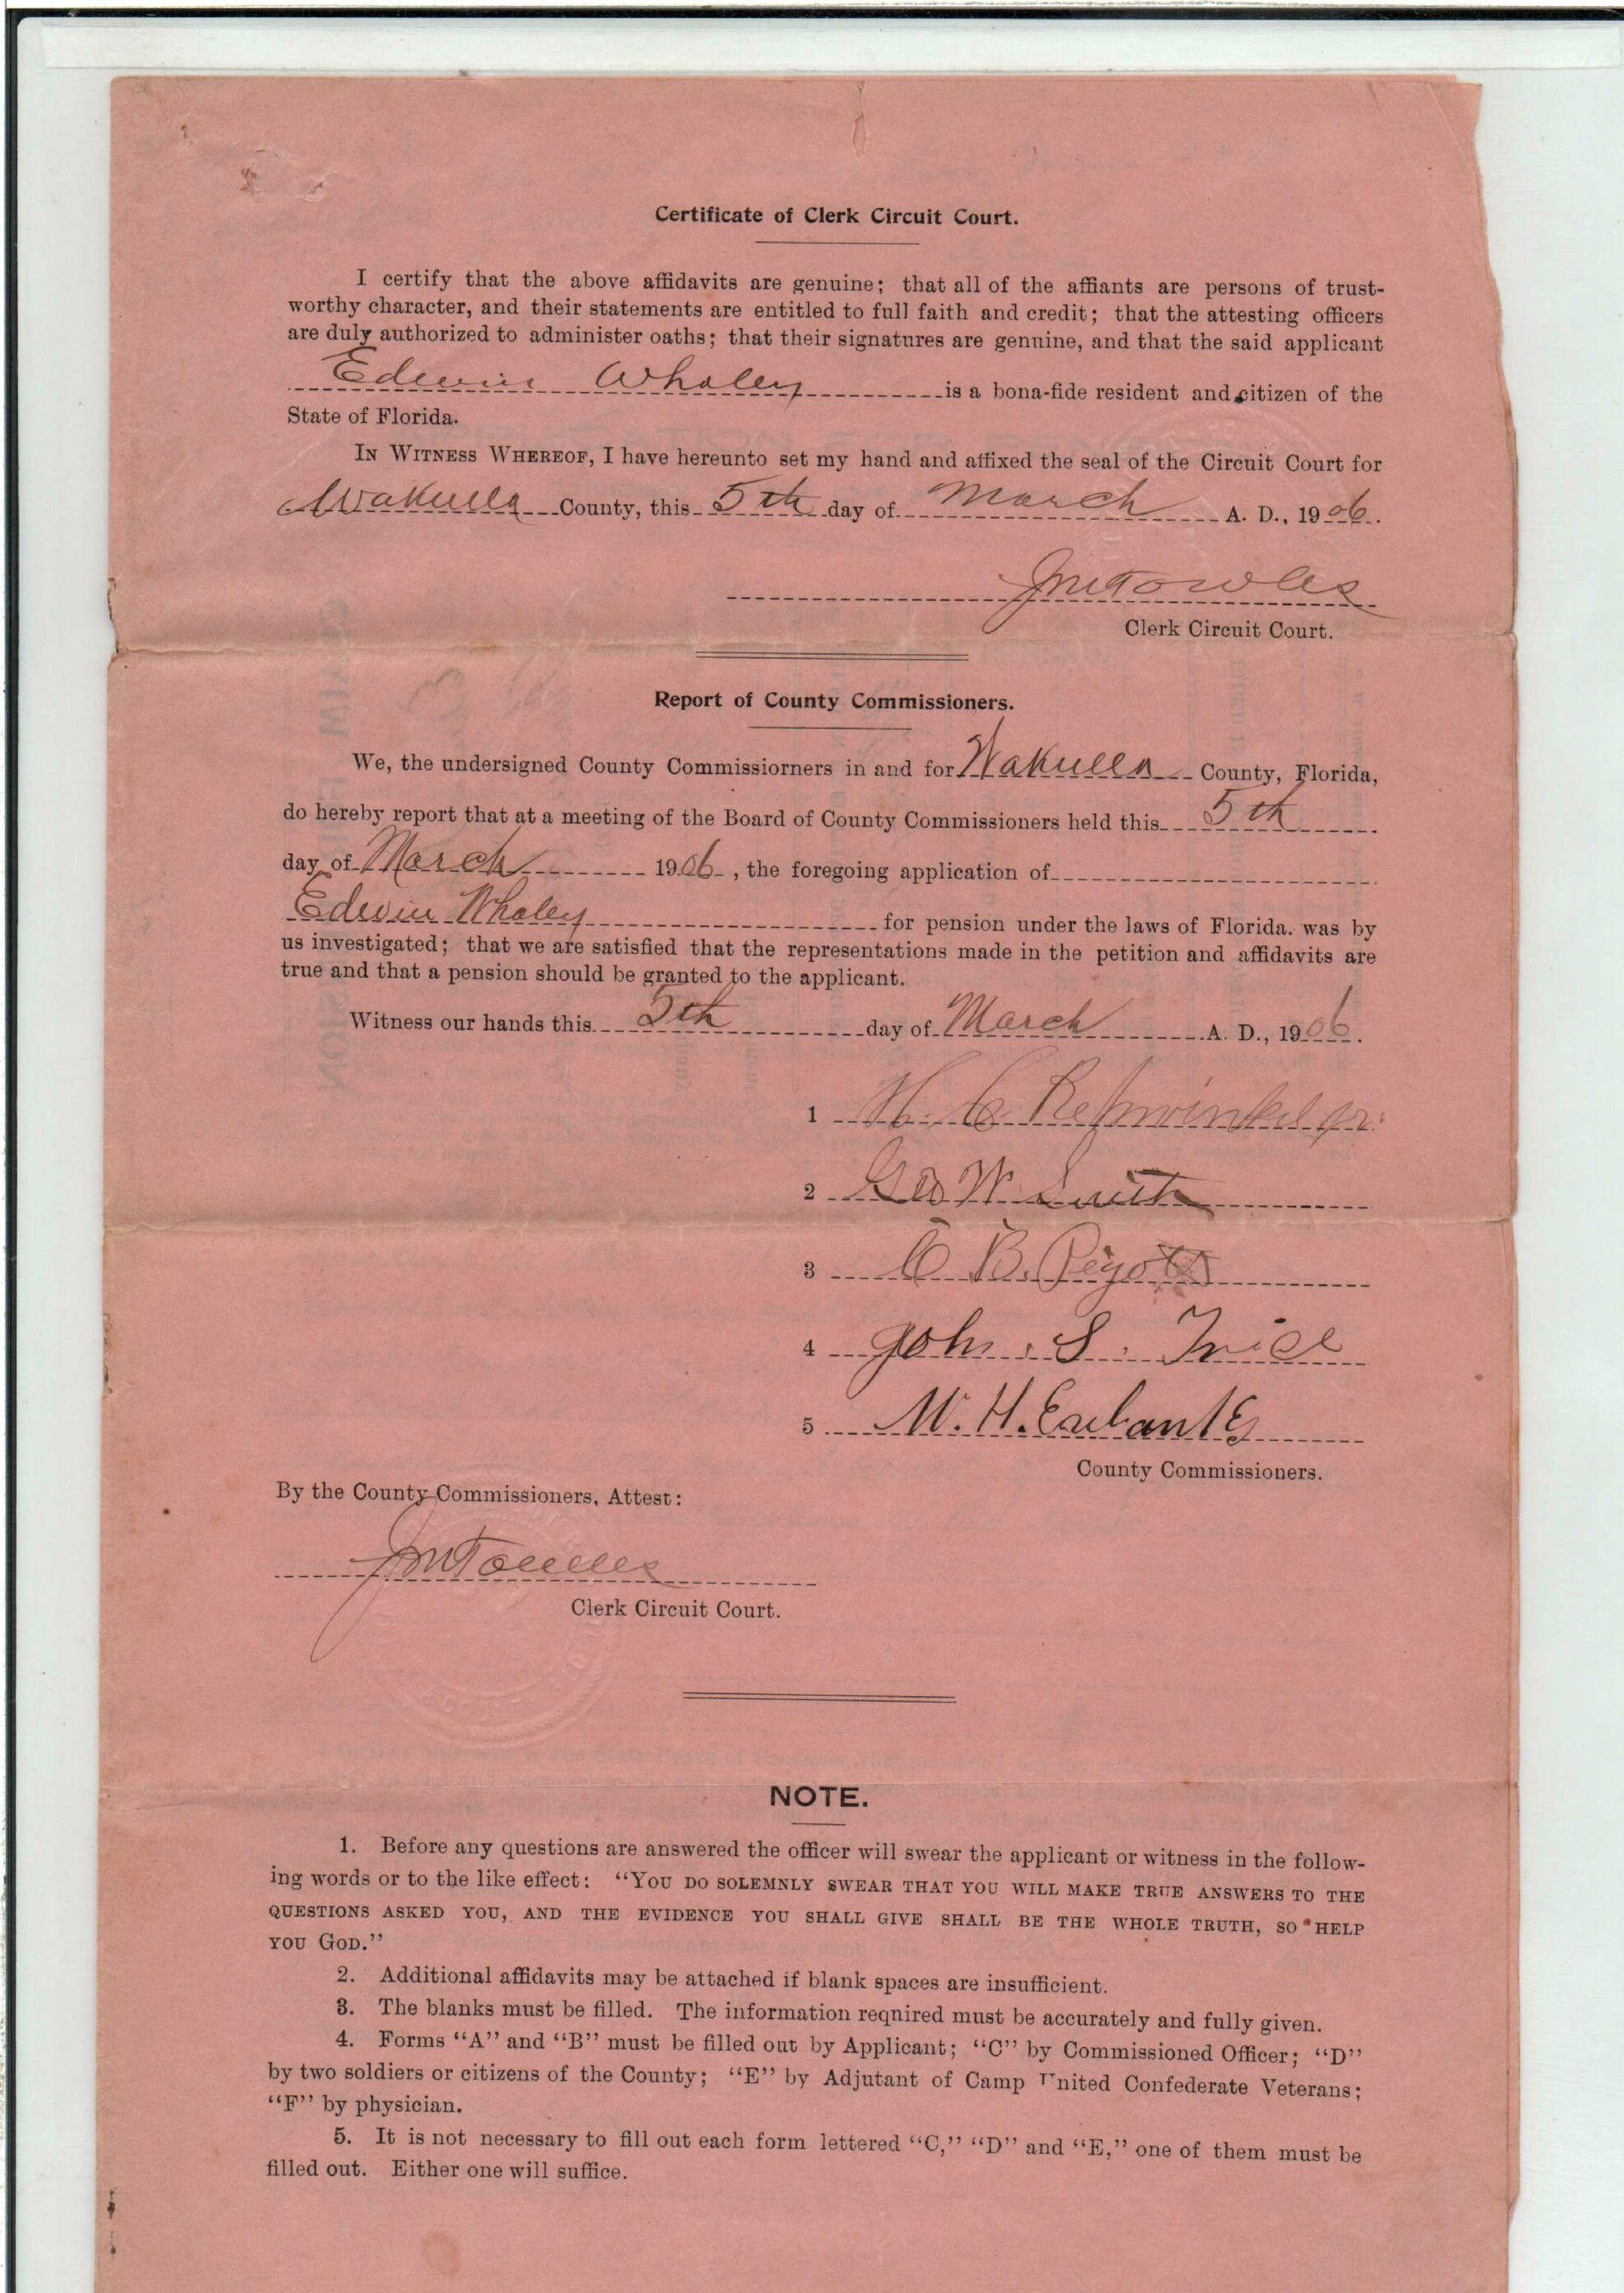 Certificate of Clerk Circuit Court.
I certify that the above affidavits are genuine; that all of the affiants are persons of trust-
worthy character, and their statements are entitled to full faith and credit; that the attesting officers
are duly authorized to administer oaths; that their signatures are genuine, and that the said applicant
Edwin Whaley is a bona-fide resident and citizen of the
State of Florida.
IN WITNESS WHEREOF, I have hereunto set my hand and affixed the seal of the Circuit Court for
Wakulla County, this 5th day of March A. D., 1906.
JM Towles
Clerk Circuit Court.
Report of County Commissioners.
We, the undersigned County Commissiorners in and for Wakulla County, Florida,
do hereby report that at a meeting of the Board of County Commissioners held this 5th
day of March 1906, the foregoing application of
Edwin Whaley for pension under the laws of Florida. was by
us investigated; that we are satisfied that the representations made in the petition and affidavits are
true and that a pension should be granted to the applicant.
Witness our hands this 5th day of March A. D., 1906.
1 H. C.
2 Geo W Smith
3 C B. Pigott
4 John S. Trice
5 W. H. Eubanks
County Commissioners.
By the County Commissioners, Attest:
JM Towles
Clerk Circuit Court.
NOTE.
1. Before any questions are answered the officer will swear the applicant or witness in the follow-
ing words or to the like effect: "YOU DO SOLEMNLY SWEAR THAT YOU WILL MAKE TRUE ANSWERS TO THE
QUESTIONS ASKED YOU, AND THE EVIDENCE YOU SHALL GIVE SHALL BE THE WHOLE TRUTH, SO HELP
YOU GOD."
2. Additional affidavits may be attached if blank spaces are insufficient.
3. The blanks must be filled. The information reqnired must be accurately and fully given.
4. Forms "A" and "B" must be filled out by Applicant; "C" by Commissioned Officer; "D"
by two soldiers or citizens of the County; "E" by Adjutant of Camp United Confederate Veterans;
"F" by physician.
5. It is not necessary to fill out each form lettered "C," "D" and "E," one of them must be
filled out. Either one will suffice.